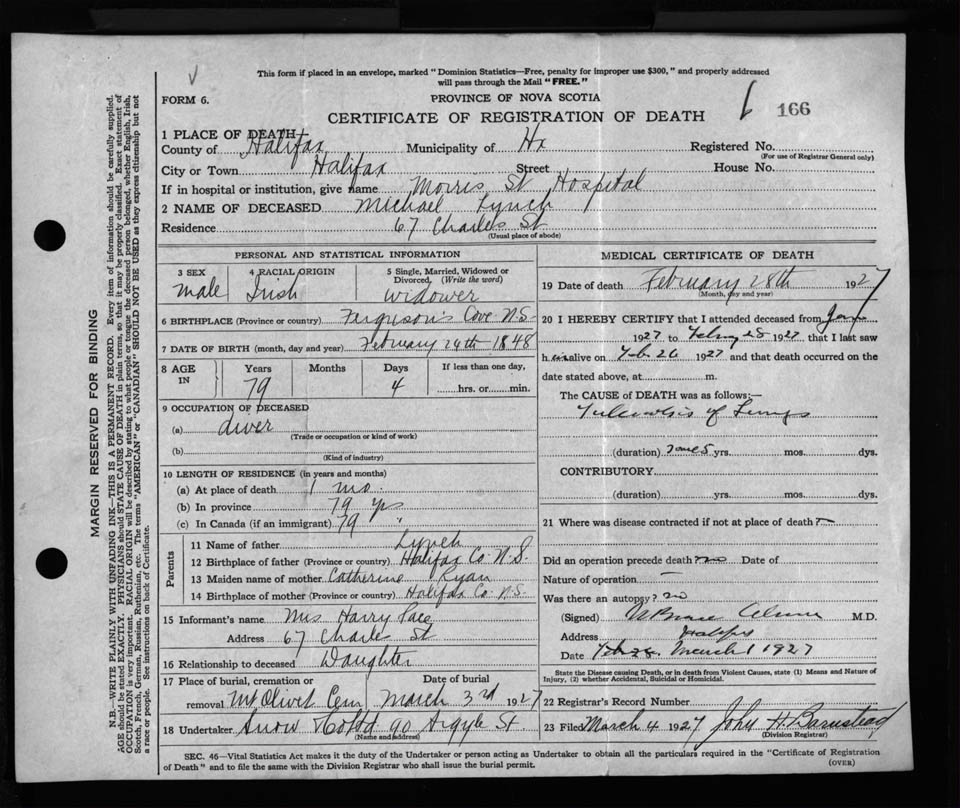 This form if placed in an envelope, marked "Dominion Statistics—Free, penalty for improper use $300," and properly addressed
will pass through the Mail "FREE."
FORM 6.
PROVINCE OF NOVA SCOTIA
CERTIFICATE OF REGISTRATION OF DEATH
166
1 PLACE OF DEATH—
County of Halifax Municipality of Hx Registered No.
(For use of Registrar General only)
City or Town Halifax Street House No.
If in hospital or institution, give name Morris St Hospital
2 NAME OF DECEASED Michael Lynch
Residence 67 Charles St
(Usual place of abode)
PERSONAL AND STATISTICAL INFORMATION
3 SEX 4 RACIAL ORIGIN 5 Single, Married, Widowed or
Divorced, (Write the word)
male Irish widower
6 BIRTHPLACE (Province or country) Ferguson's Cove N.S.
7 DATE OF BIRTH (month, day and year) February 24th 1848
8 AGE IN Years Months Days If less than one day,
79 4 hrs. or min.
9 OCCUPATION OF DECEASED
(a) diver
(Trade or occupation or kind of work)
(b)
(Kind of industry)
10 LENGTH OF RESIDENCE (in years and months)
(a) At place of death 1 mo.
(b) In province 79 yr
(c) In Canada (if an immigrant) 79 "
Parents
11 Name of father Lynch
12 Birthplace of father (Province or country) Halifax Co N.S.
13 Maiden name of mother Catherine Ryan
14 Birthplace of mother (Province or country) Halifax Co. N.S.
15 Informant's name Mrs Harry
Address 67 Charles St
16 Relationship to deceased Daughter
17 Place of burial, cremation or Date of burial
removal Mt Olivet Cem March 3rd 1927
18 Undertaker Snow & Co Ltd 90 Argyle St
(Name and address)
MEDICAL CERTIFICATE OF DEATH
19 Date of death February 28th 1927
(Month, day and year)
20 I HEREBY CERTIFY that I attended deceased from
1927 to 28 1927 that I last saw
h im alive on Feb 26 1927 and that death occurred on the
date stated above, at m.
The CAUSE of DEATH was as follows:—
of Lungs
(duration) yrs. mos. dys.
CONTRIBUTORY
(duration) yrs. mos. dys.
21 Where was disease contracted if not at place of death? —
Did an operation precede death no Date of
Nature of operation —
Was there an autopsy? no
(Signed) M.D.
Address Halifax
Date March 1 1927
State the Disease causing Death, or in death from Violent Causes, state (1) Means and Nature of
Injury, (2) whether Accidental, Suicidal or Homicidal.
22 Registrar's Record Number
23 Filed March 4 1927 John H. Barnstead
(Division Registrar)
SEC. 46—Vital Statistics Act makes it the duty of the Undertaker or person acting as Undertaker to obtain all the particulars required in the "Certificate of Registration
of Death" and to file the same with the Division Registrar who shall issue the burial permit. (OVER)
MARGIN RESERVED FOR BINDING
N.B.—WRITE PLAINLY WITH UNFADING INK—THIS IS A PERMANENT RECORD. Every item of information should be carefully supplied.
AGE should be stated EXACTLY. PHYSICIANS should STATE CAUSE OF DEATH in plain terms, so that it may be properly classified. Exact statement of
OCCUPATION is very important. RACIAL ORIGIN will be described by stating to what people or tongue the deceased person belonged, whether English, Irish,
Scotch, French, German, Russian, Ruthenian, etc. The terms "AMERICAN" or "CANADIAN" SHOULD NOT BE USED as they express citizenship but not
a race or people. See instructions on back of Certificate.